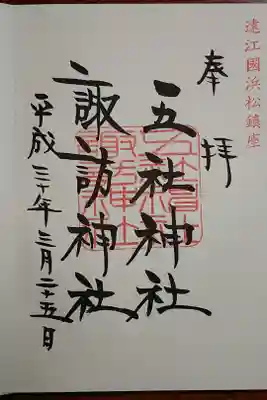 遠江國浜松鎮座
奉拝
五社神社
諏訪神社
平成三十年三月二十五日